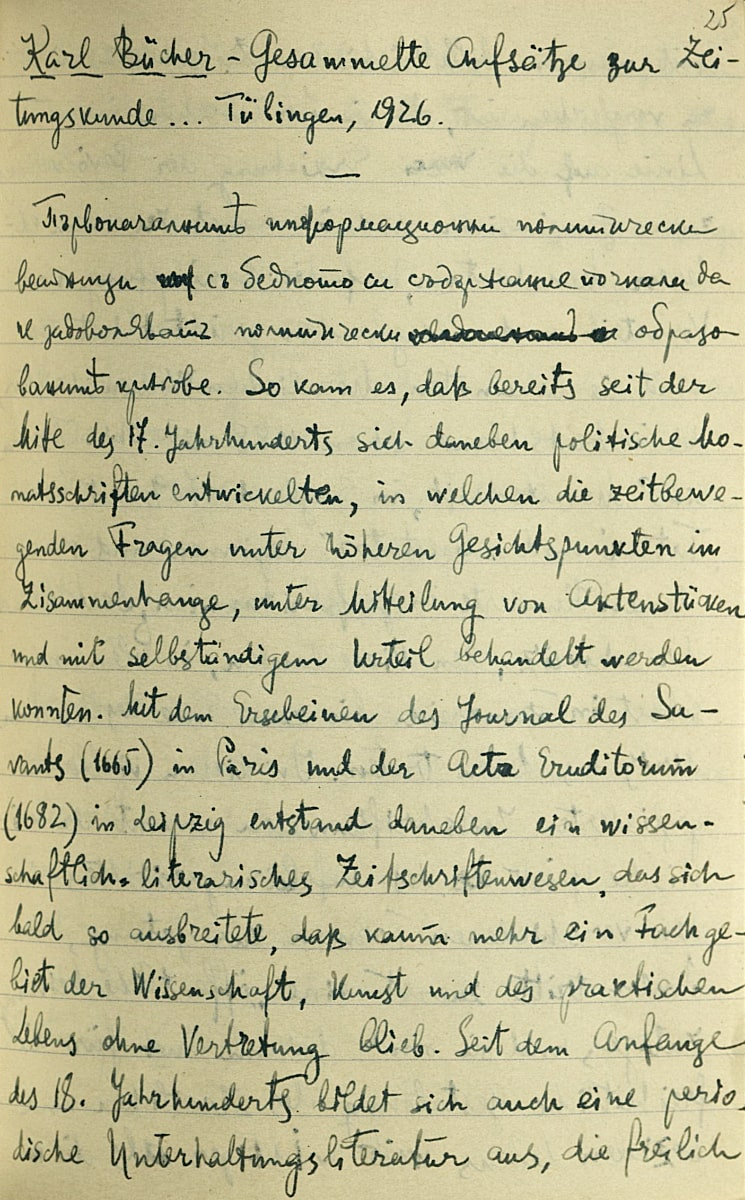 25
Karl Bücher - Gesammelte Aufsätze zur Zei-
tungskunde... Tübingen, 1926.
Първоначалнитѣ информационни политически
съ бедното си съдържание почнали да
не задоволяватъ политически образо
ванитѣ кръгове. So kam es, daß bereits seit der
Mitte des 17. Jahrhunderts sich daneben politische Mo-
natsschriften entwickelten, in welchen die zeitbewe-
genden Fragen unter höheren Gesichtspunkten im
Zusammenhange, unter Mitteilung von Aktenstücken
und mit selbständigem Urteil behandelt werden
konnten. Mit dem Erscheinen des Journal des Sa-
vants (1665) in Paris und der Acta Eruditorum
(1682) in Leipzig entstand daneben ein wissen-
schaftlich-literarisches Zeitschriftenwesen, das sich
bald so ausbreitete, daß kaum mehr ein Fachge-
biet der Wissenschaft, Kunst und des praktischen
Lebens ohne Vertretung blieb. Seit dem Anfange
des 18. Jahrhunderts bildet sich auch eine perio-
dische Unterhaltungsliteratur aus, die freilich